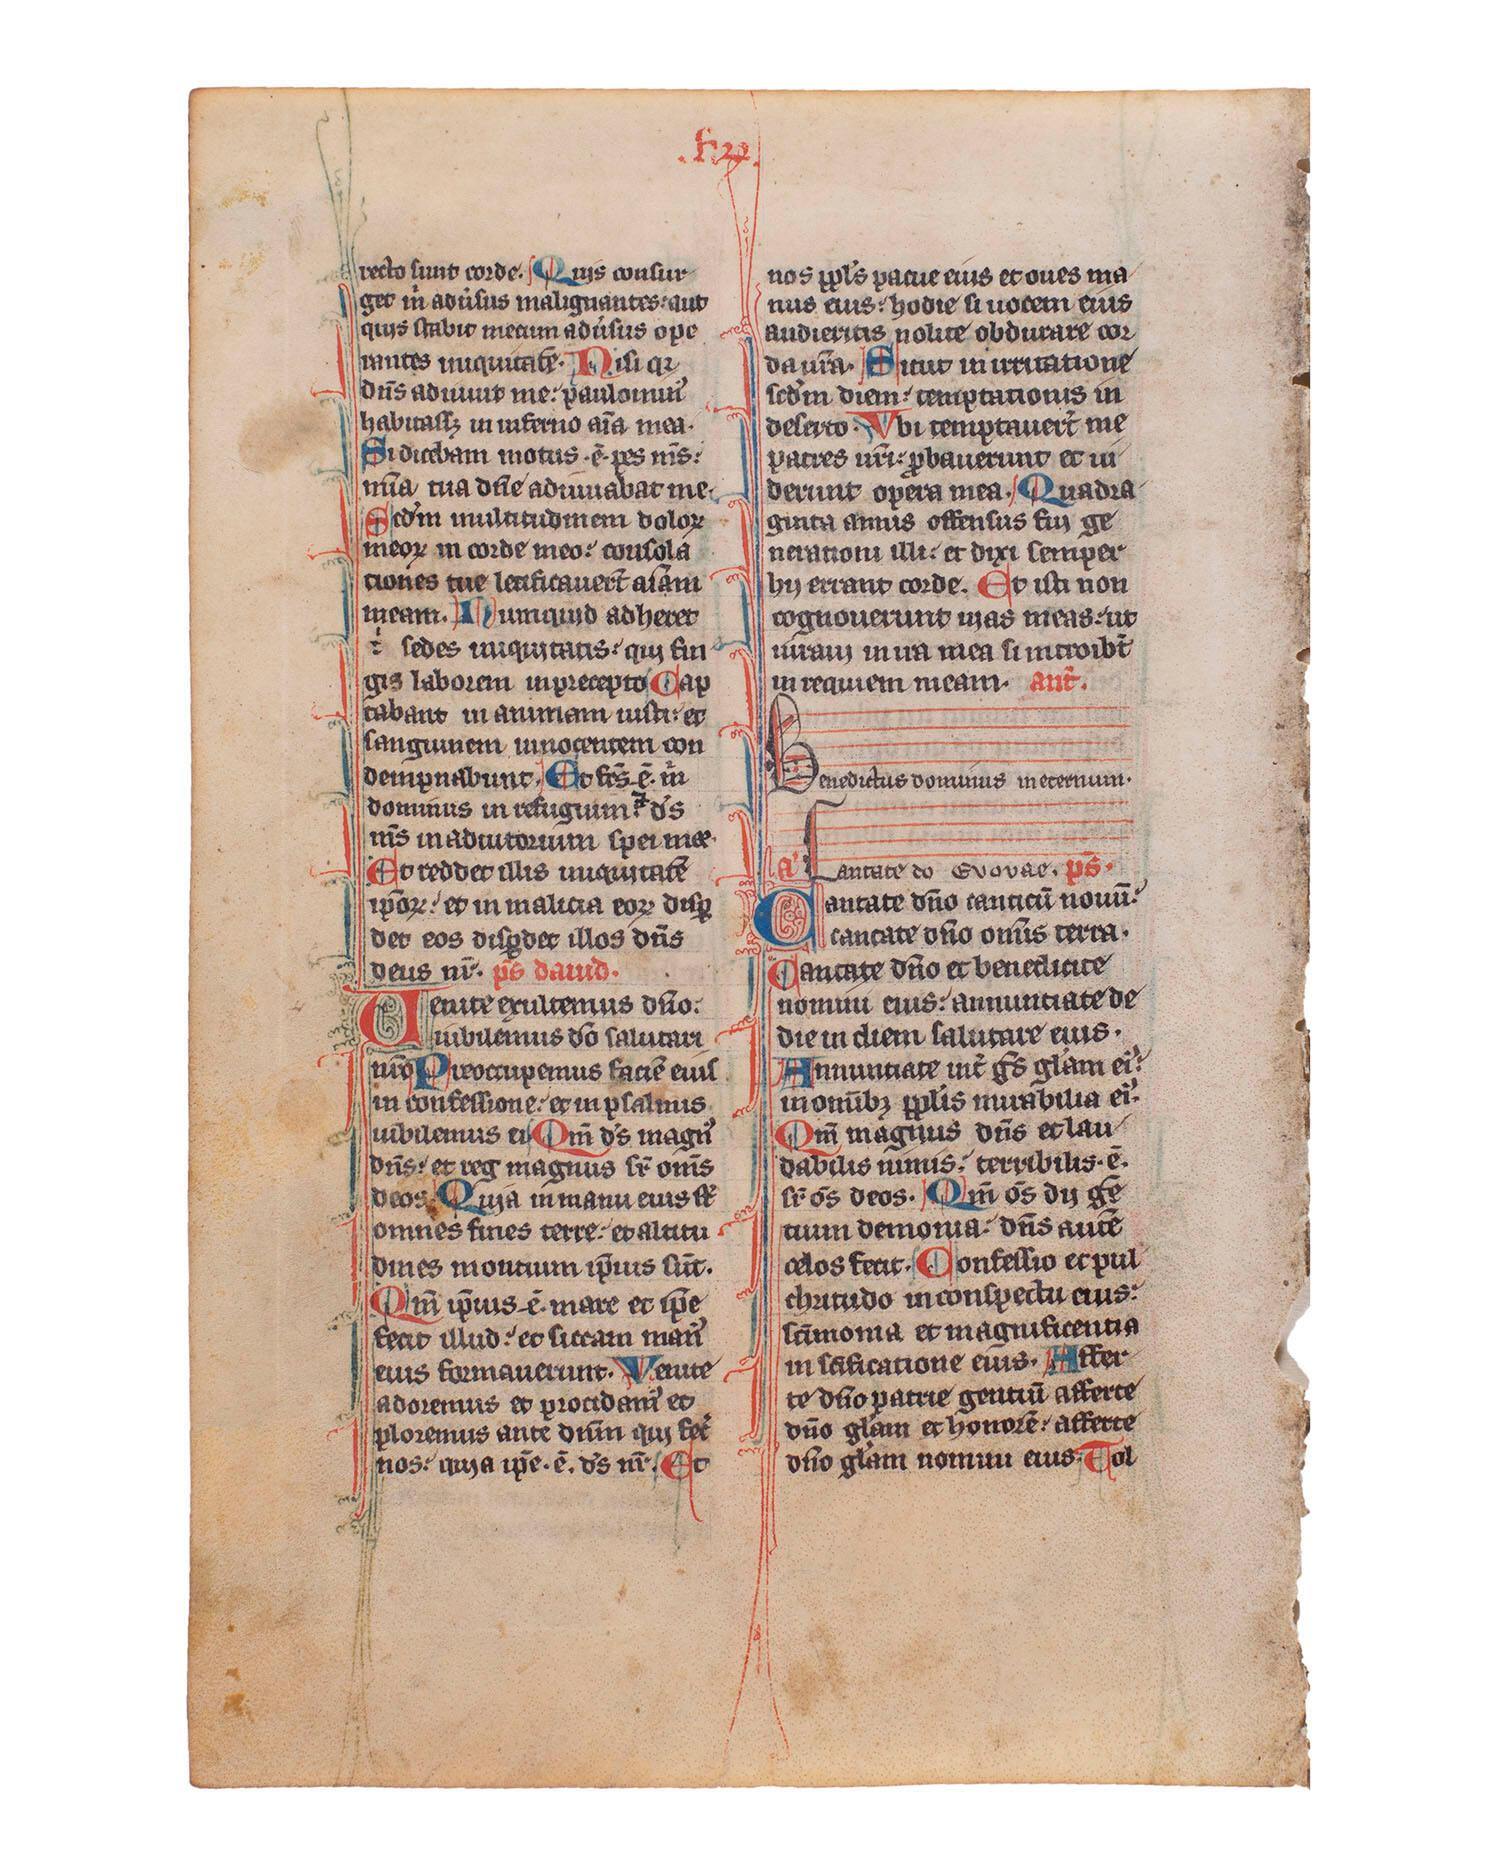 recto sunt corde. Quis consur
get m̄ adūsus malignantes: aut
quis stabit mecum adūsus ope
rantes iniquitatē. Nisi qꝛ
dn̄s adiuuit me: paulominꝰ
habitassꝫ in inferno aīa mea.
Si dicebam motus .ē. pes m̄s:
mīa tua dn̄e adiuuabat me.
Scdm multitudinem doloꝝ
meoꝝ in corde meo: consola
tiones tue letificauer̄t aīam
meam. Numquid adheret
t̄ sedes iniquitatis: qui fin
gis laborem in precepto Cap
tabant in animam iusti: et
sanguinem innocentem con
dempnabunt. Et fc̄s .ē. m̄
dominus in refugium: ⁊ ds̄
m̄s in adiutorium spei mee.
Et reddet illis iniquitatē
ip̄oꝝ: et in malicia eoꝝ disp̱
det eos disp̱det illos dn̄s
deus nr̄. ps̄ dauid.
Uenite exultemus dn̄o:
iubilemus dō salutari
nr̄o Preoccupemus faciē eius
in confessione: et in psalmis
iubilemus ei Qm̄ ds̄ magnꝰ
dn̄s: et rex magnus sr̄ om̄s
deos. Quia in manu eius st̄
omnes fines terre: et altitu
dines montium ip̄ius sūt.
Qm̄ ip̄ius .ē. mare et ip̄e
fecit illud: et siccam manꝰ
eius formauerunt. Venite
adoremus et procidamꝰ et
ploremus ante dn̄m qui fec̄
nos: quia ip̄e .ē. ds̄ nr̄. Et
.f. 22.
nos pp̄ls pascue eius et oues ma
nus eius: hodie si uocem eius
audieritis nolite obdurare cor
da ur̄a. Sicut in irritatione
scdm diem: temptationis in
deserto. Vbi temptauer̄t me
patres ur̄i: ꝓbauerunt et ui
derunt opera mea. Quadra
ginta annis offensus fui ge
nerationi illi: et dixi semper
hij errant corde. Et isti non
cognouerunt uias meas: ut
iuraui in ira mea si introibt̄
in requiem meam. ant̄.
Benedictus dominus in eternum.
a' Cantate do Evovae. ps̄.
Cantate dn̄o canticū nouū:
cantate dn̄o om̄is terra.
Cantate dn̄o et benedicite
nomini eius: annuntiate de
die in diem salutare eius.
Annuntiate int̄ gn̄s glam eiꝰ:
in omībꝫ pp̄lis mirabilia eiꝰ.
Qm̄ magnus dn̄s et lau
dabilis nimis: terribilis .ē.
sr̄ om̄s deos. Qm̄ om̄s dij gē
tium demonia: dn̄s autē
celos fecit. Confessio et pul
chritudo in conspectu eius:
scīmonia et magnificentia
in scīficatione eius. Affer
te dn̄o patrie gentiū afferte
dn̄o glam et honorē: afferte
dn̄o glam nomini eius: Tol